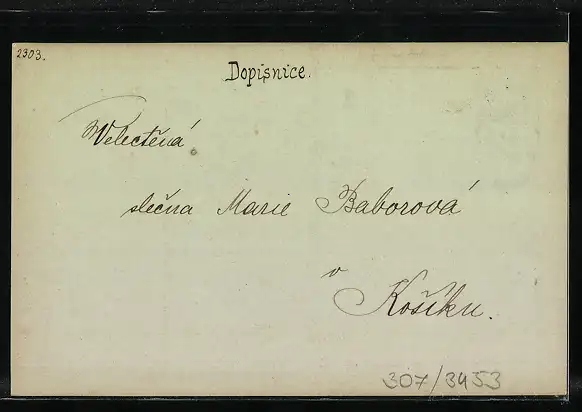 2303.
Dopisnice.
Velectěná
slečna Marie Baborová
v
Košíku.
307/3453